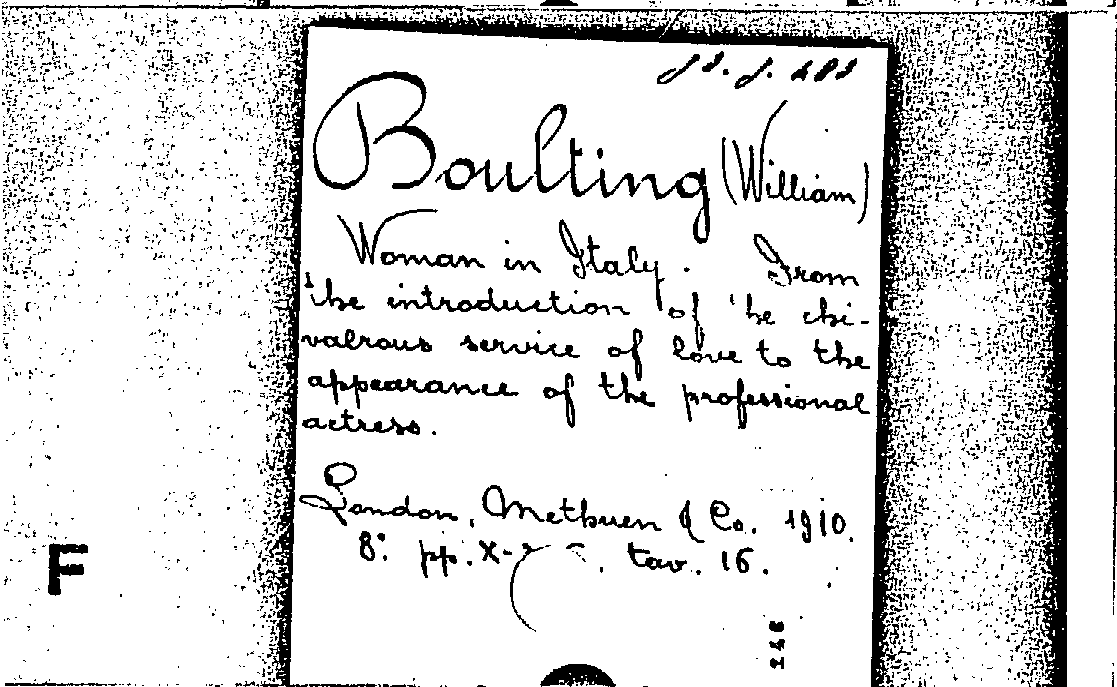 Boulting (William)
Woman in Italy. From
the introduction of the chi-
valrous service of love to the
appearance of the professional
actress.
London, Methuen & Co. 1910.
8°. pp. X- tav. 16.
F